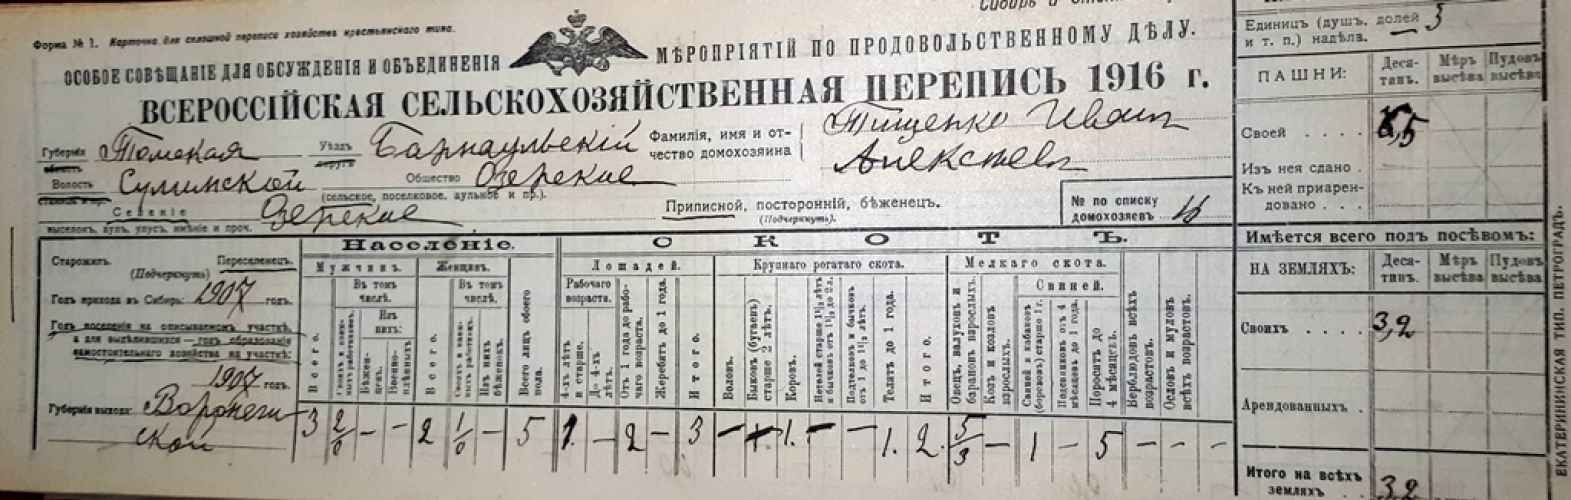 Сибирь и Степн
Форма № 1. Карточка для сплошной переписи хозяйствъ крестьянскаго типа.
ОСОБОЕ СОВѢЩАНІЕ ДЛЯ ОБСУЖДЕНІЯ И ОБЪЕДИНЕНІЯ МѢРОПРІЯТІЙ ПО ПРОДОВОЛЬСТВЕННОМУ ДѢЛУ.
ВСЕРОССІЙСКАЯ СЕЛЬСКОХОЗЯЙСТВЕННАЯ ПЕРЕПИСЬ 1916 г.
Губернія Томская Уѣздъ Барнаульскій
область округъ
Фамилія, имя и от-
чество домохозяина
Тищенко Иванъ
Алексѣев
Волость Сулинской Общество Озерское
(сельское, поселковое, аульное и пр.).
Селеніе Озерское
выселокъ, аулъ, улусъ, имѣніе и проч.
Приписной, посторонній, бѣженецъ.
(Подчеркнуть).
№ по списку
домохозяевъ 16
Старожилъ. Переселенецъ.
(Подчеркнуть)
Годъ прихода въ Сибирь: 1907 годъ.
Годъ поселенія на описываемомъ участкѣ,
а для выдѣлившихся — годъ образованія
самостоятельнаго хозяйства на участкѣ:
1907 годъ.
Губернія выхода: Воронеж
ской
Населеніе.
Мужчинъ. Женщинъ.
Всего.
Въ томъ числѣ.
Изъ нихъ:
Бѣжен-цевъ.
Военно-плѣнныхъ
Всего.
Въ томъ числѣ.
Изъ нихъ бѣженокъ.
Всего лицъ обоего пола.
СКОТЪ.
Лошадей.
Рабочаго возраста.
4-хъ лѣтъ и старше.
До 4-хъ лѣтъ.
Отъ 1 года до рабо-чаго возраста.
Жеребятъ до 1 года.
Итого.
Крупнаго рогатаго скота.
Воловъ.
Быковъ (бугаевъ) старше 2 лѣтъ.
Коровъ.
Нетелей старше 1½ лѣтъ и бычковъ отъ 1½ до 2 л.
Подтелковъ и бычковъ отъ 1 до 1½ лѣтъ.
Телятъ до 1 года.
Итого.
Мелкаго скота.
Овецъ, валуховъ и барановъ взрослыхъ.
Козъ и козловъ взрослыхъ.
Свиней.
Свиней и кабановъ (борововъ) старше 1 г.
Подсвинковъ отъ 4 мѣсяцевъ до 1 года.
Поросятъ до 4 мѣсяцевъ.
Верблюдовъ всѣхъ возрастовъ.
Ословъ и муловъ всѣхъ возрастовъ.
3 2/0 – – 2 1/0 – 5 1. – 2 – 3 – 1. 1. – – 1. 2. 5/3 – 1 – 5 – –
Единицъ (душъ, долей 3
и т. п.) надѣла.
ПАШНИ: Деся-тинъ. Мѣръ высѣва Пудовъ высѣва.
Своей . . . . 6,5
Изъ нея сдано .
Къ ней приарен-
довано . . .
Имѣется всего подъ посѣвомъ:
НА ЗЕМЛЯХЪ: Деся-тинъ. Мѣръ высѣва Пудовъ высѣва.
Своихъ . . . . 3,2
Арендованныхъ .
Итого на всѣхъ
земляхъ . 3,2
ЕКАТЕРИНИНСКАЯ ТИП. ПЕТРОГРАДЪ.